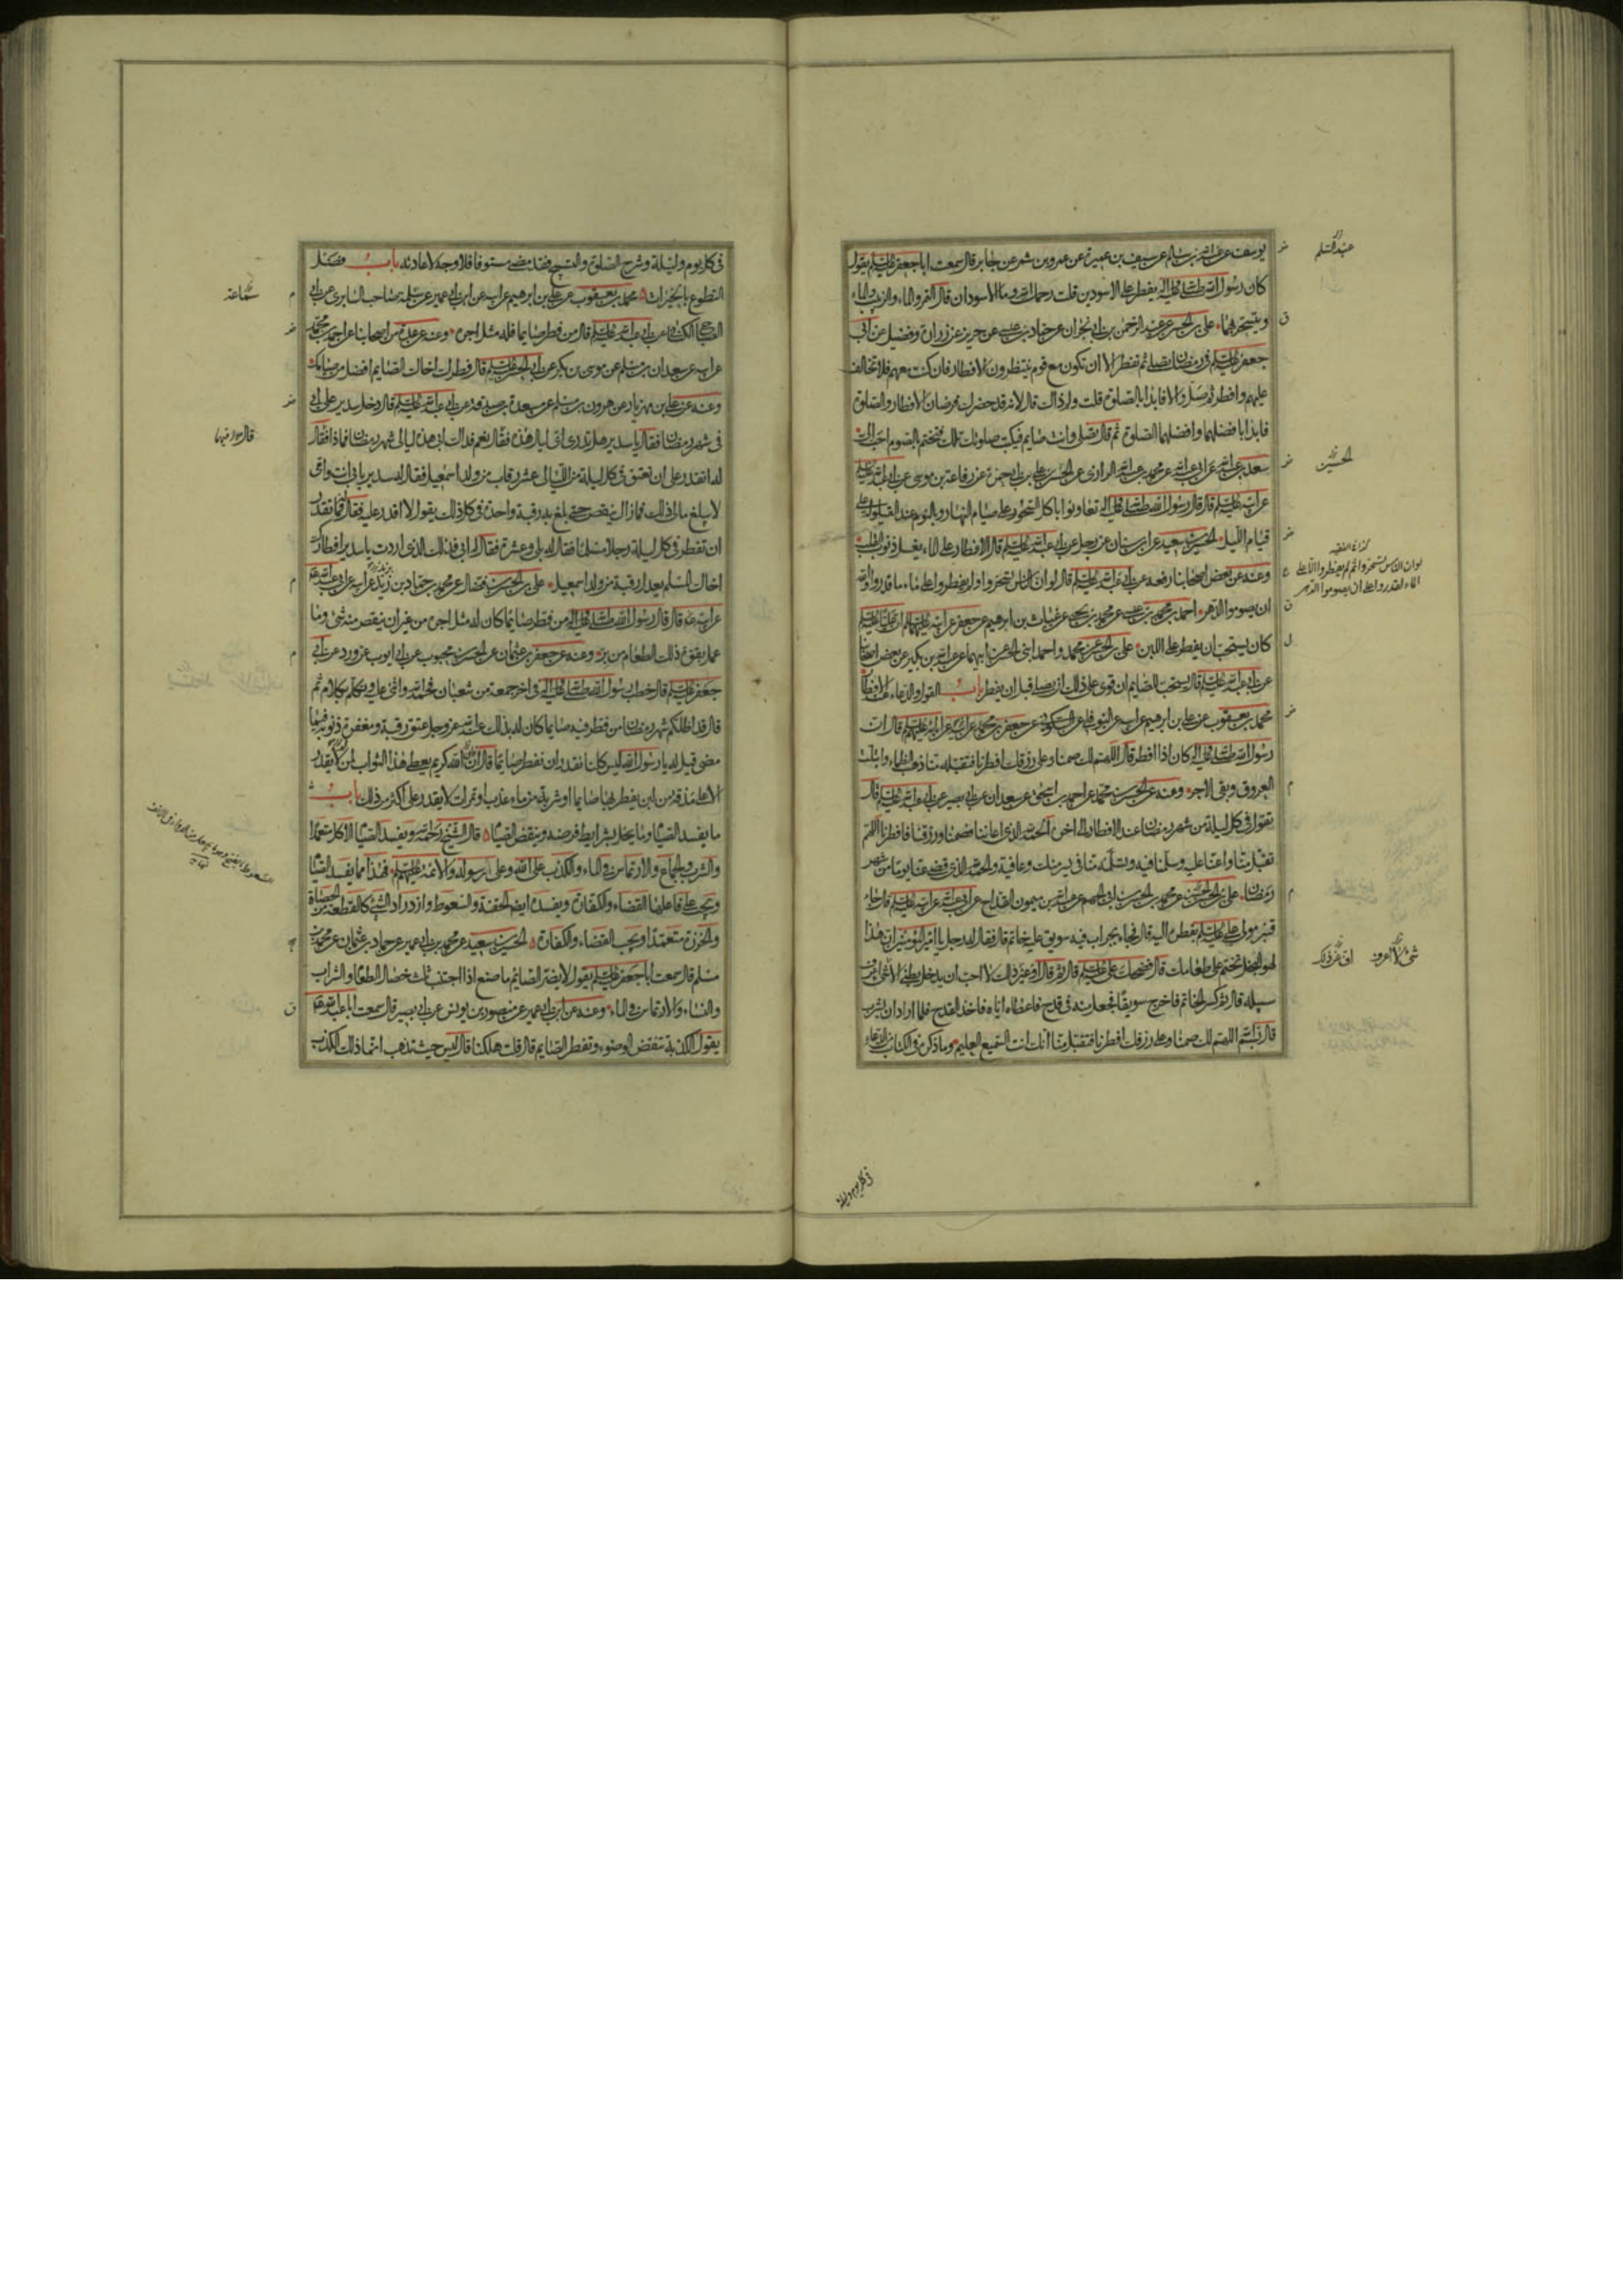 يوسف عن عبدالله بن سالم عن سيف بن عميرة عن عمرو بن شمر عن جابر قال سمعت ابا جعفر عليه السلم يقول
كان رسول الله صلى الله عليه واله يفطر على الاسودين قلت رحمك الله وما الاسودان قال التمر والماء والزبيب والماء
ويتسحر بهما علي بن الحسن عن عبد الرحمن بن ابي نجران عن حماد بن عيسى عن حريز عن زرارة وفضيل عن ابي
جعفر عليه السلم في رمضان تصلي ثم تفطر الا ان تكون مع قوم ينتظرون الافطار فان كنت معهم فلا تخالف
عليهم وافطر ثم صل والا فابدا بالصلوة قلت ولم ذلك قال لانه قد حضرك فرضان الافطار والصلوة
فابدا بافضلهما وافضلهما الصلوة ثم قال تصلي وانت صايم فتكتب صلوتك تلك فتختم بالصوم احب الي
سعد بن عبدالله عن ابي عبدالله عن محمد بن عبدالله الرازي عن الحسن بن علي بن ابي حمزة عن رفاعة بن موسى عن ابي عبدالله عليه السلم
عن ابيه عليه السلم قال قال رسول الله صلى الله عليه واله تعاونوا باكل السحور على صيام النهار وبالنوم عند القيلولة على
قيام الليل الحسين بن سعيد عن ابن سنان عن رجل عن ابي عبدالله عليه السلم قال الافطار على الماء يغسل ذنوب القلب
وعنه عن بعض اصحابنا رفعه عن ابي عبدالله عليه السلم قال لو ان الناس تسحروا ولم يفطروا على ماء ما قدروا والله
ان يصوموا الدهر احمد بن محمد بن عيسى عن محمد بن يحيى عن غياث بن ابرهيم عن جعفر عن ابيه عليهما السلم ان عليا عليه السلم
كان يستحب ان يفطر على اللبن علي بن الحسن عن محمد واحمد ابني الحسن عن ابيهما عن عبدالله بن بكير عن بعض اصحابنا
عن ابي عبدالله عليه السلم قال يستحب للصايم ان قوي على ذلك ان يصلي قبل ان يفطر باب القول والدعاء عند الافطار
محمد بن يعقوب عن علي بن ابرهيم عن ابيه عن النوفلي عن السكوني عن جعفر بن محمد عن ابيه عن ابائه عليهم السلم قال ان
رسول الله صلى الله عليه واله كان اذا افطر قال اللهم لك صمنا وعلى رزقك افطرنا فتقبله منا ذهب الظماء وابتلت
العروق وبقي الاجر وعنه عن الحسين بن محمد عن احمد بن اسحق عن سعدان عن ابي بصير عن ابي عبدالله عليه السلم قال
تقول في كل ليلة من شهر رمضان عند الافطار الى اخره الحمد لله الذي اعاننا فصمنا ورزقنا فافطرنا اللهم
تقبل منا واعنا عليه وسلمنا فيه وتسلمه منا في يسر منك وعافية والحمد لله الذي قضى عنا يوما من شهر
رمضان علي بن الحسن عن محمد بن الحسن بن ابي الجهم عن عبدالله بن ميمون القداح عن ابي عبدالله عن ابيه عليه السلم قال جاء
قنبر مولى علي عليه السلم بفطره اليه قال فجاء بجراب فيه سويق عليه خاتم قال فقال له رجل يا امير المؤمنين ان هذا
لهو البخل تختم على طعامك قال فضحك علي عليه السلم قال ثم قال او غير ذلك لا احب ان يدخل بطني الا شيء اعرف
سبيله قال ثم كسر الخاتم فاخرج سويقا فجعل منه في قدح فاعطاه اياه فاخذ القدح فلما اراد ان يشرب
قال بسم الله اللهم لك صمنا وعلى رزقك افطرنا فتقبل منا انك انت السميع العليم وما ذكره في الكتاب من الدعاء
عبد السلم
الحسين
كذا في الفقيه
لو ان الناس تسحروا ثم لم يفطروا الا على
الماء لقدروا على ان يصوموا الدهر
شيء لا اعرف
في كل يوم وليلة
في كل يوم وليلة وشرح الصلوة والتسبيح فقد مضى مستوفا فلا وجه لاعادته باب فضل
التطوع بالخيرات محمد بن يعقوب عن علي بن ابرهيم عن ابيه عن ابن ابي عمير عن سلمة صاحب السابري عن ابي
الصباح الكناني عن ابي عبدالله عليه السلم قال من فطر صايما فله مثل اجره وعنه عن عدة من اصحابنا عن احمد بن محمد
عن ابيه عن سعدان بن مسلم عن موسى بن بكر عن ابي الحسن عليه السلم قال فطرك اخاك الصايم افضل من صيامك
وعنه عن علي بن مهزيار عن هرون بن مسلم عن مسعدة بن صدقة عن ابي عبدالله عليه السلم قال دخل سدير على ابي
في شهر رمضان فقال يا سدير هل تدري اي ليال هذه فقال نعم فداك ابي هذه ليالي شهر رمضان فما ذا فقال
له اتقدر على ان تعتق في كل ليلة من الليالي عشر رقاب من ولد اسمعيل فقال له سدير بابي انت وامي
لا يبلغ مالي ذلك فما زال ينقص حتى بلغ به رقبة واحدة في كل ذلك يقول لا اقدر عليه فقال له فما تقدر
ان تفطر في كل ليلة رجلا مسلما فقال له بلى وعشرة فقال له ابي فذاك الذي اردت يا سدير افطارك
اخاك المسلم يعدل رقبة من ولد اسمعيل علي بن الحسن بن فضال عن محمد بن حماد بن زيد عن ابيه عن ابي عبدالله
عن ابيه قال قال رسول الله صلى الله عليه واله من فطر صايما كان له مثل اجره من غير ان ينقص منه شيء وما
عمل بقوة ذلك الطعام من بر وعنه عن جعفر بن عثمان عن الحسن بن محبوب عن ابي ايوب عن ابي الورد عن ابي
جعفر عليه السلم قال خطب رسول الله صلى الله عليه واله في اخر جمعة من شعبان فحمد الله واثنى عليه وتكلم بكلام ثم
قال قد اظلكم شهر رمضان من فطر فيه صايما كان له بذلك عند الله عز وجل عتق رقبة ومغفرة ذنوبه فيما
مضى قيل له يا رسول الله ليس كلنا نقدر ان نفطر صايما قال ان الله كريم يعطي هذا الثواب لمن لا يقدر
الا على مذقة من لبن يفطر بها صايما او شربة من ماء عذب او تمرات لا يقدر على اكثر من ذلك باب
ما يفسد الصيام وما يخل بشرايط فرضه وينقض الصيام قال الشيخ رحمه الله ويفسد الصيام الاكل متعمدا
والشرب والجماع والارتماس في الماء والكذب على الله وعلى رسوله والائمة عليهم السلم فهذا مما يفسد الصيام
ويجب على فاعلها القضاء والكفارة ويفسده ايضا الحقنة والسعوط وازدراد الشيء كالقطعة من الحصاة
والخرزة متعمدا ويجب القضاء والكفارة الحسين بن سعيد عن محمد بن ابي عمير عن حماد بن عثمان عن محمد بن
مسلم قال سمعت ابا جعفر عليه السلم يقول لا يضر الصايم ما صنع اذا اجتنب ثلث خصال الطعام والشراب
والنساء والارتماس في الماء وعنه عن ابن ابي عمير عن منصور بن يونس عن ابي بصير قال سمعت ابا عبدالله
يقول الكذبة تنقض الوضوء وتفطر الصايم قال قلت هلكنا قال ليس حيث تذهب انما ذلك الكذب
سماعة